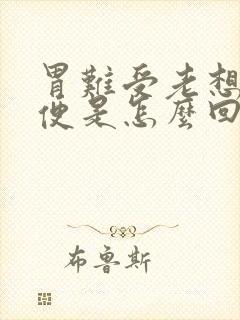 胃難受老想
便是怎麼回
布魯斯